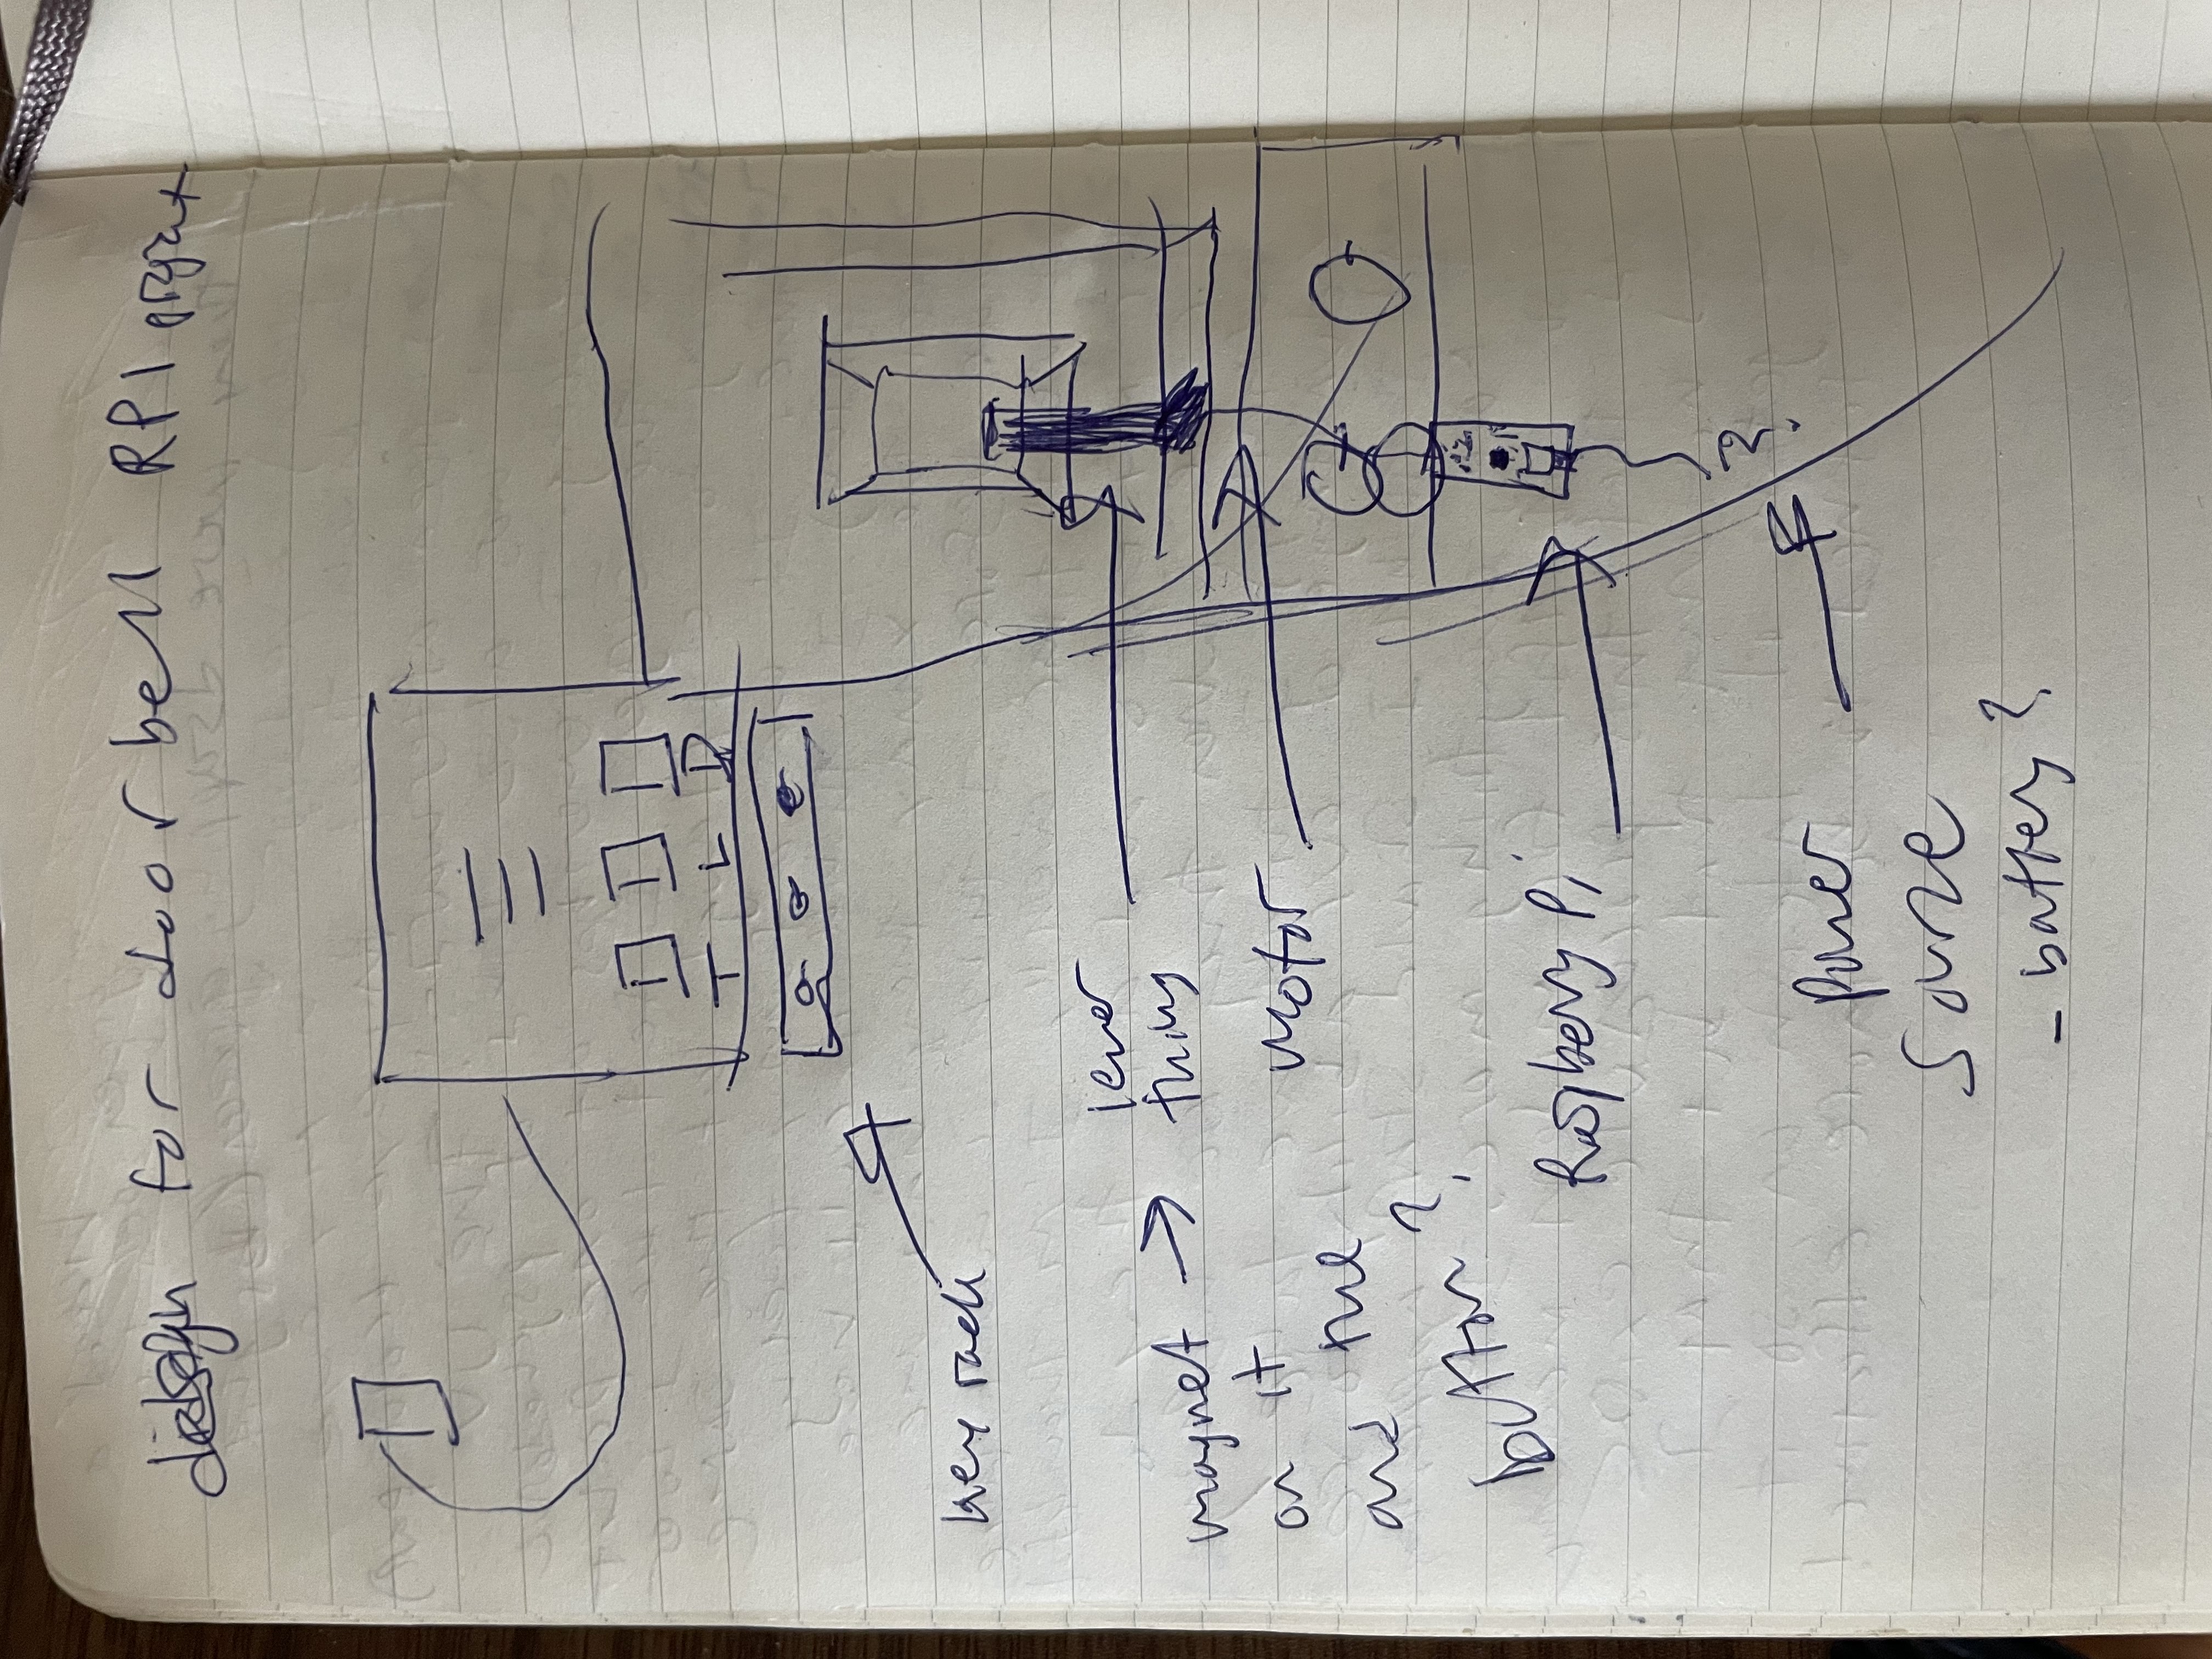 design for door bell RPI project
T L D
key rack
lever
thing
magnet
on it
and the
button?
motor
Raspberry Pi
?
Power
Source
- battery?